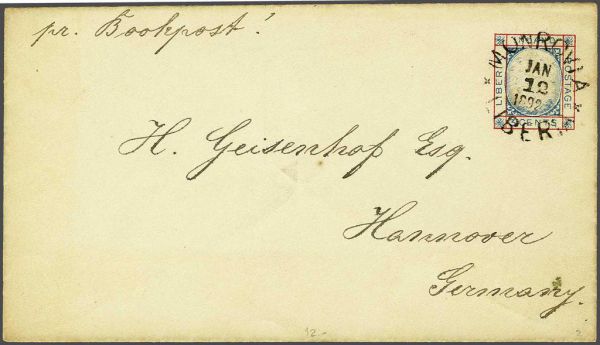 pr. Bookpost!
MUNROVIA
JAN
12
1892
LIBERI
POSTAGE
CENTS
H. Geisenhof Esq.
Hannover
Germany.
12-